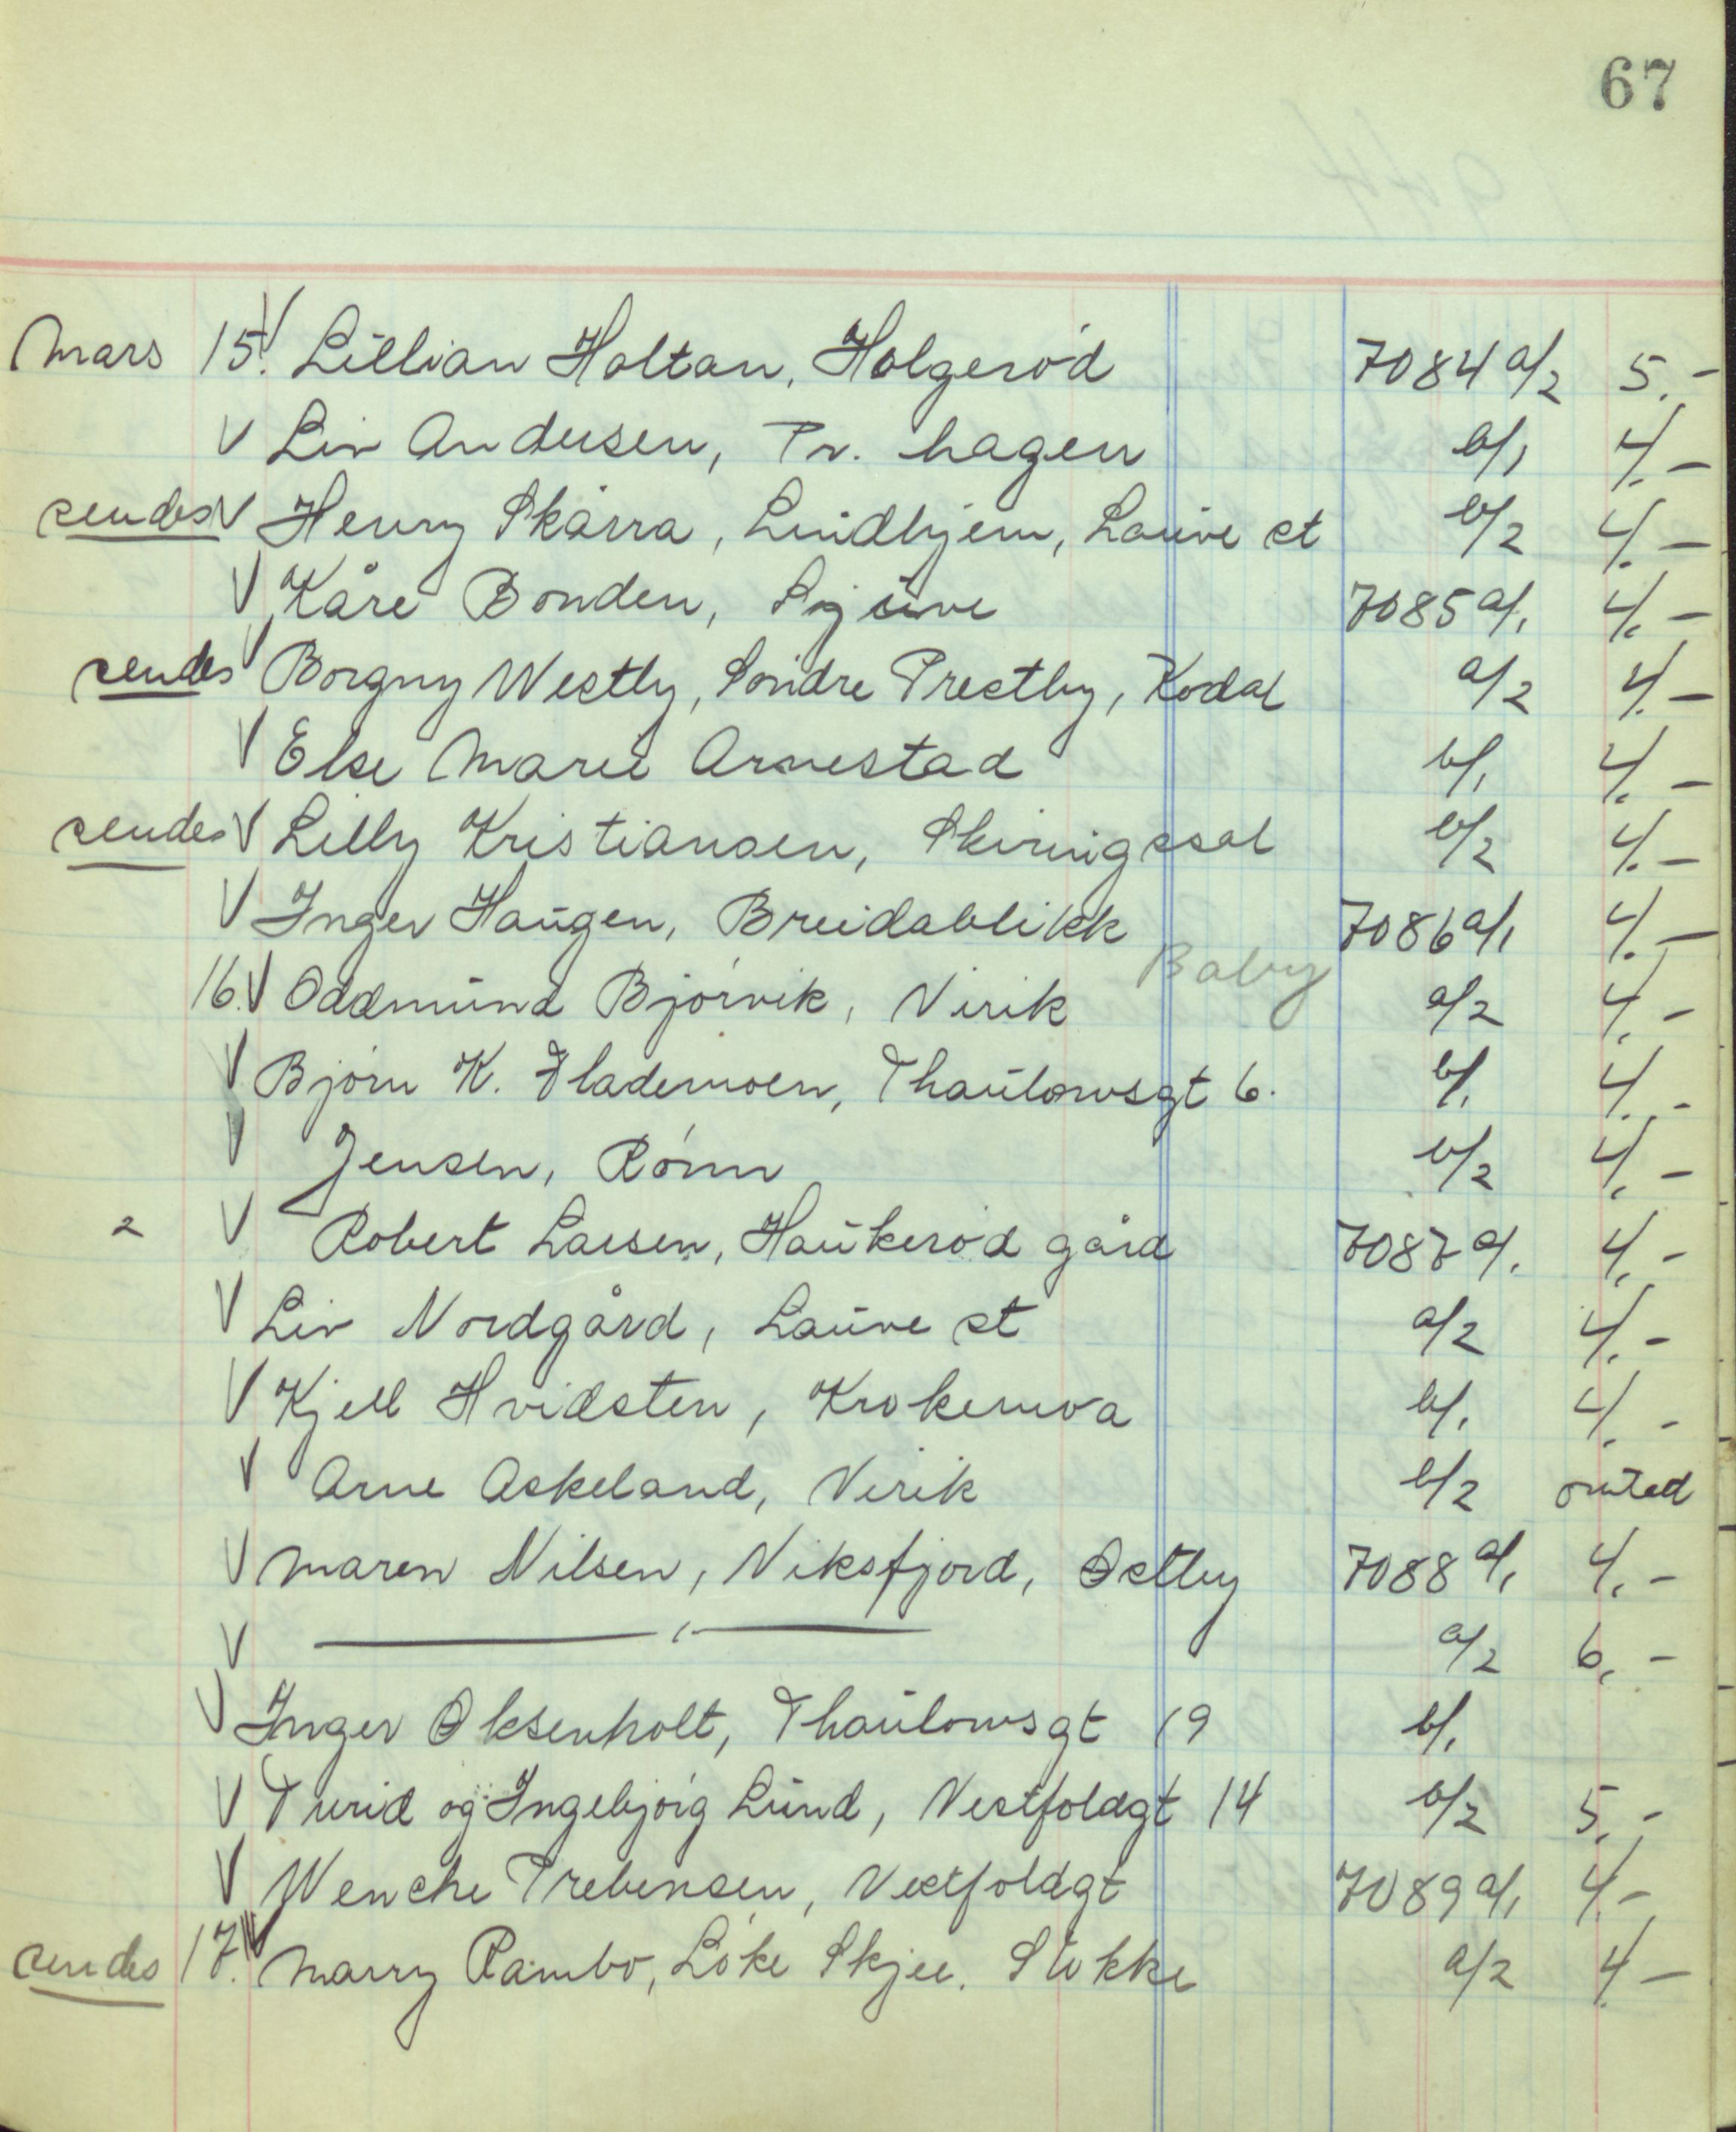 67
Mars 15. V Lillian Holtan, Holgerød 7084 a/2 5.-
V Liv Andersen, Pr. hagen b/1 4.-
sendes V Henry Skårra, Lindhjem, Lauve st b/2 4.-
V Kåre Bonden, Sjuve 7085 a/1 4.-
sendes V Borgny Westby, Søndre Prestby, Kodal a/2 4.-
V Else Marie Arnestad b/1 4.-
sendes V Lilly Kristiansen, Skiringssal b/2 4.-
V Inger Haugen, Breidablikk 7086 a/1 4.-
Baby
16. V Oddmund Bjørvik, Virik a/2 4.-
V Bjørn K. Flademoen, Thaulowsgt 6. b/1 4.-
V Jensen, Rønn b/2 4.-
2 V Robert Larsen, Haukerød gård 7087 a/1 4.-
V Liv Nordgård, Lauve st a/2 4.-
V Kjell Hvidsten, Krokemoa b/1 4.-
V Arne Askeland, Virik b/2
V Maren Nilsen, Viksfjord, Østby 7088 a/1 4.-
V —— " —— a/2 6.-
V Inger Oksenholt, Thaulowsgt 19 b/1
V Turid og Ingebjørg Lund, Vestfoldgt 14 b/2 5.-
V Wenche Prebensen, Vestfoldgt 7089 a/1 4.-
sendes 17. V Marry Rambo, Løke Skjee. Stokke a/2 4.-